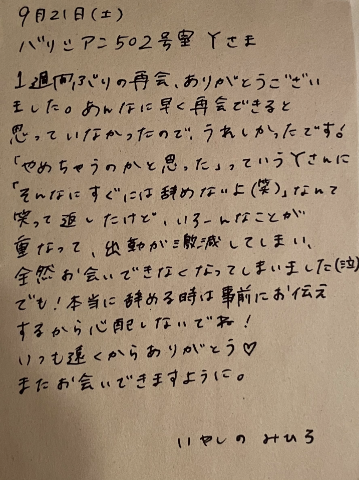 9月21日(土)
バリジアン502号室 Yさま
1週間ぶりの再会、ありがとうござい
ました。あんなに早く再会できると
思っていなかったので、うれしかったです!
「やめちゃうのかと思った」っていうYさんに
「そんなにすぐには辞めないよ(笑)」なんて
笑って返したけど、いろーんなことが
重なって、出勤が激減してしまい、
全然お会いできなくなってしまいました(泣)
でも!本当に辞める時は事前にお伝え
するから心配しないでね!
いつも遠くからありがとう♡
またお会いできますように。
いやしの みひろ